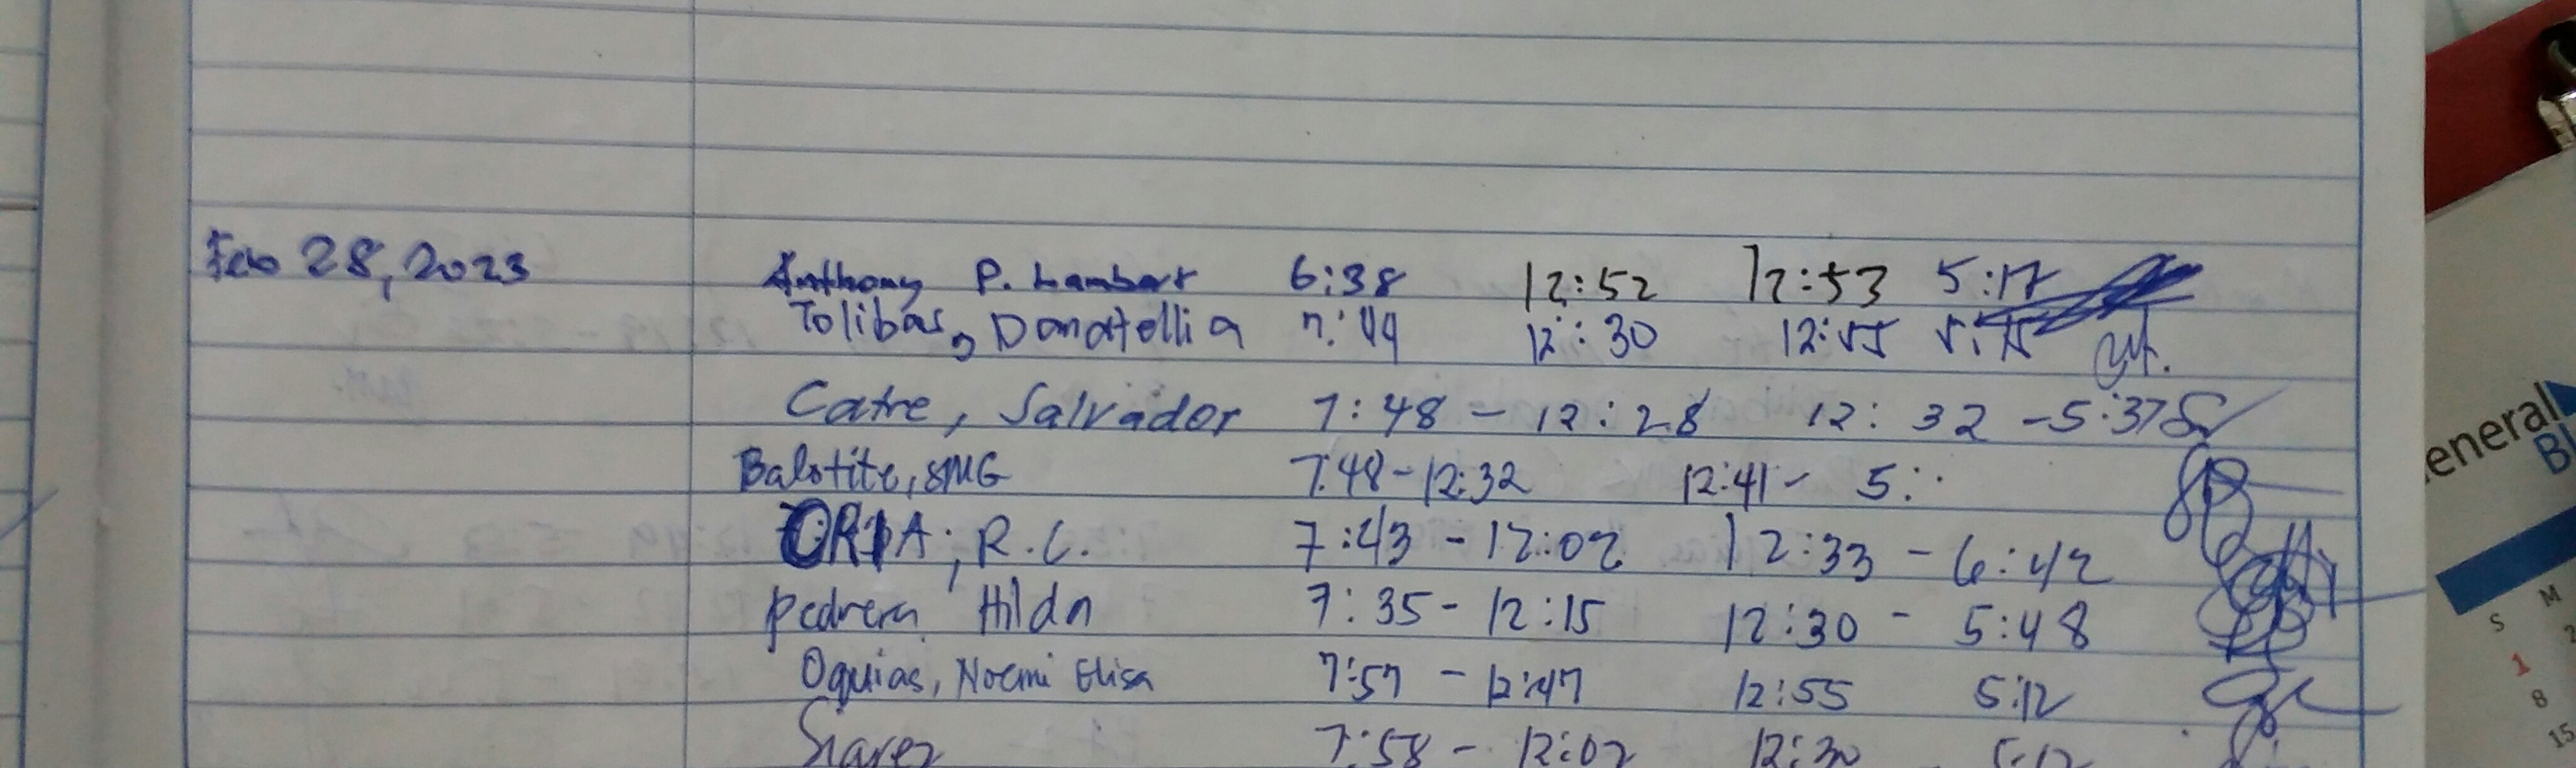 Feb 28, 2023 Anthony P. Lambert 6:38 12:52 12:53 5:17
Tolibas, Donatellia 7:44 12:30 12:55 5:15
Catre, Salvador 7:48 - 12:28 12:32 - 5:37
Balotite, SMG 7:48 - 12:32 12:41 - 5:
ORIA, R.C. 7:43 - 12:02 12:33 - 6:42
Pedrera, Hilda 7:35 - 12:15 12:30 - 5:48
Oquias, Noemi Elisa 7:57 - 12:47 12:55 5:12
Siarez 7:58 - 12:02 12:30 5:12
eneral
S M
1
8
15